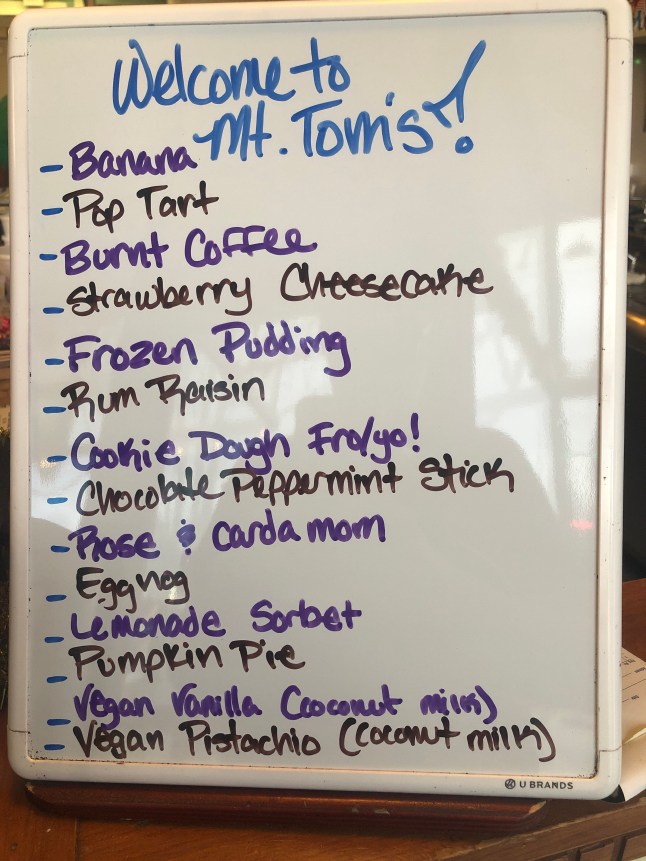 Welcome to
Mt. Tom's!
- Banana
- Pop Tart
- Burnt Coffee
- Strawberry Cheesecake
- Frozen Pudding
- Rum Raisin
- Cookie Dough Fro/yo!
- Chocolate Peppermint Stick
- Rose & Cardamom
- Eggnog
- Lemonade Sorbet
- Pumpkin Pie
- Vegan Vanilla (coconut milk)
- Vegan Pistachio (coconut milk)
U BRANDS